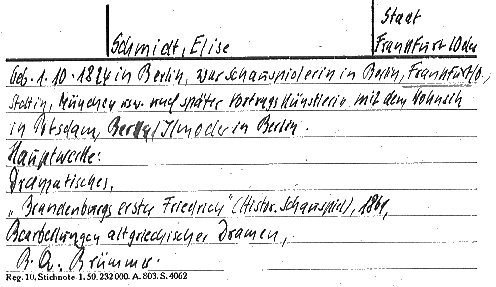 Staat
Schmidt, Elise Frankfurt/Oder
Geb. 1.10.1824 in Berlin, war Schauspielerin in Berlin, Frankfurt/O.,
Stettin, München usw. und später Vortragskünstlerin mit dem Wohnsitz
in Potsdam, in Berlin.
Hauptwerke:
Dramatisches,
„Brandenburgs erster Friedrich" (Histor. Schauspiel), 1861,
Bearbeitungen altgriechischer Dramen,
Brümmer.
Reg. 10, Stichnote 1. 50. 232000. A. 803. S. 4062